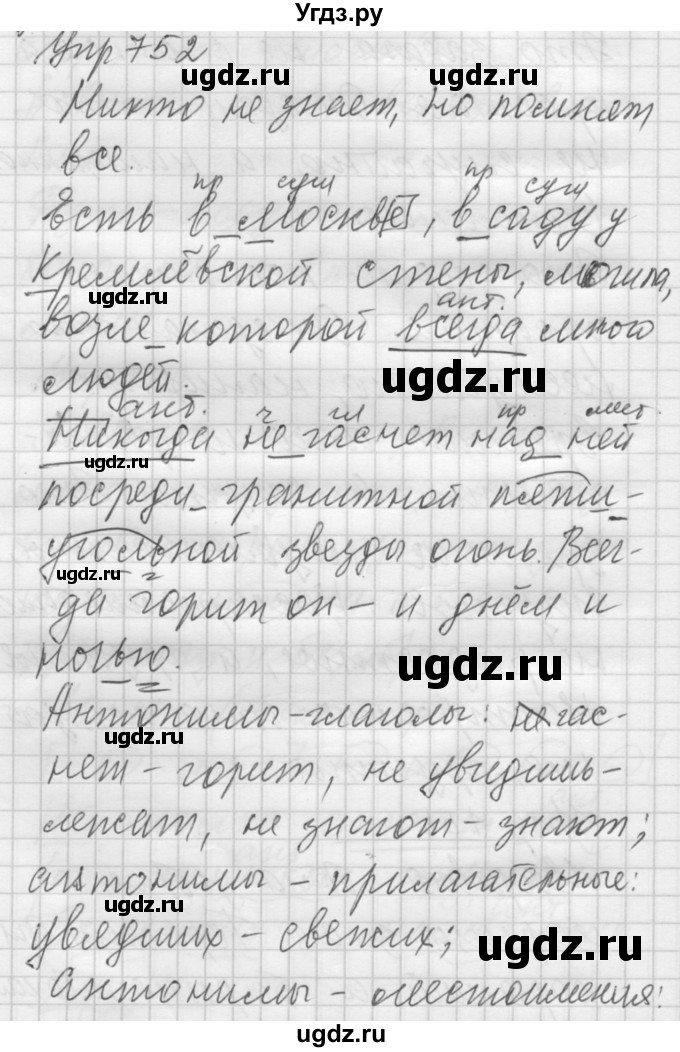 Угдз.ру
Упр 752
ugdz.ru ugdz.ru
Никто не знает, но помнят
все.
пр сущ пр сущ
Есть в Москв[е], в саду у
Кремлёвской стены, могила,
ugdz.ru ант.
возле которой всегда много
людей. ugdz.ru
ант. ч гл пр мест.
Никогда не гаснет над ней
ugdz.ru
посреди гранитной пяти-
угольной звезды огонь. Всег-
ugdz.ru
да горит он – и днём и
ночью. ugdz.ru
Антонимы-глаголы: не гас-
ugdz.ru
нет – горит, не увидишь –
лежат, не знают – знают;
антонимы – прилагательные:
ugdz.ru
увядших – свежих; ugdz.ru
антонимы – местоимения:
ugdz.ru